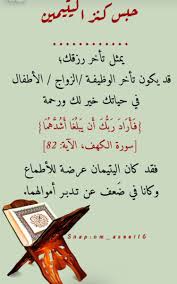 حبس كنز اليتيمين
يمثل تأخر رزقك؛
قد يكون تأخر الوظيفة /الزواج / الأطفال
في حياتك خير لك ورحمة
{فَأَرَادَ رَبُّكَ أَن يَبْلُغَا أَشُدَّهُمَا}
[سورة الكهف، الآية: 82]
فقد كان اليتيمان عرضة للأطماع
وكانا في ضَعف عن تدبر أموالهما.